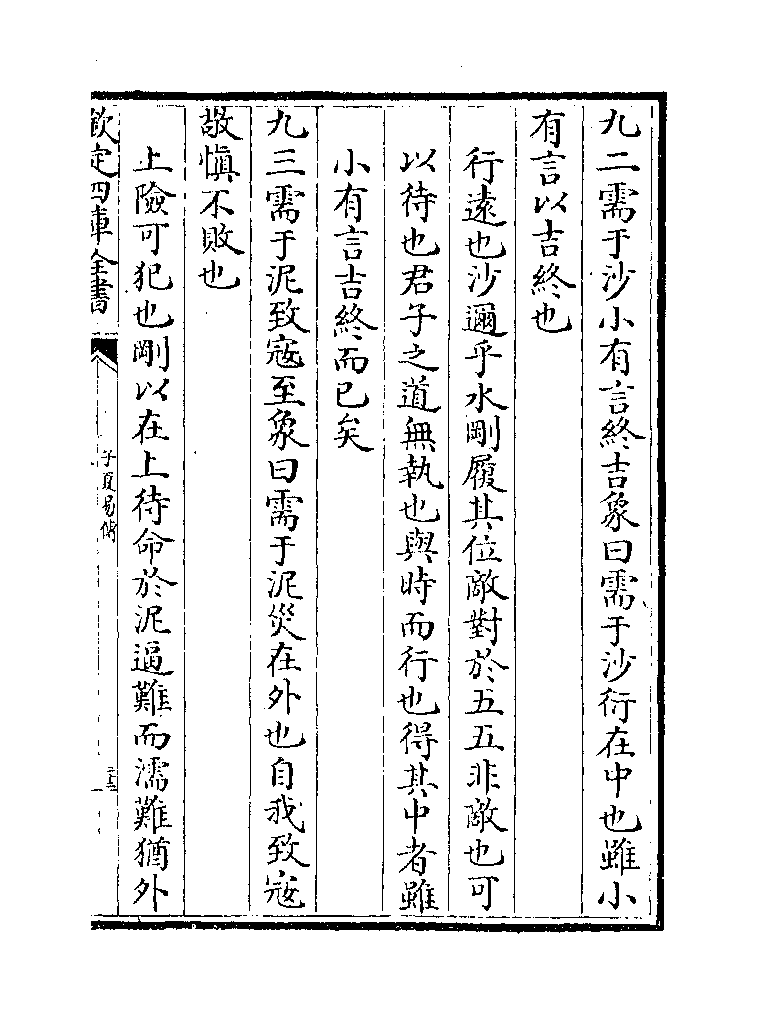 九二需于沙小有言終吉象曰需于沙衍在中也雖小
有言以吉終也
行遠也沙邇乎水剛履其位敵對於五五非敵也可
以待也君子之道無執也與時而行也得其中者雖
小有言吉終而已矣
九三需于泥致寇至象曰需于泥災在外也自我致寇
敬慎不敗也
上險可犯也剛以在上待命於泥逼難而濡難猶外
欽定四庫全書
子夏易傳